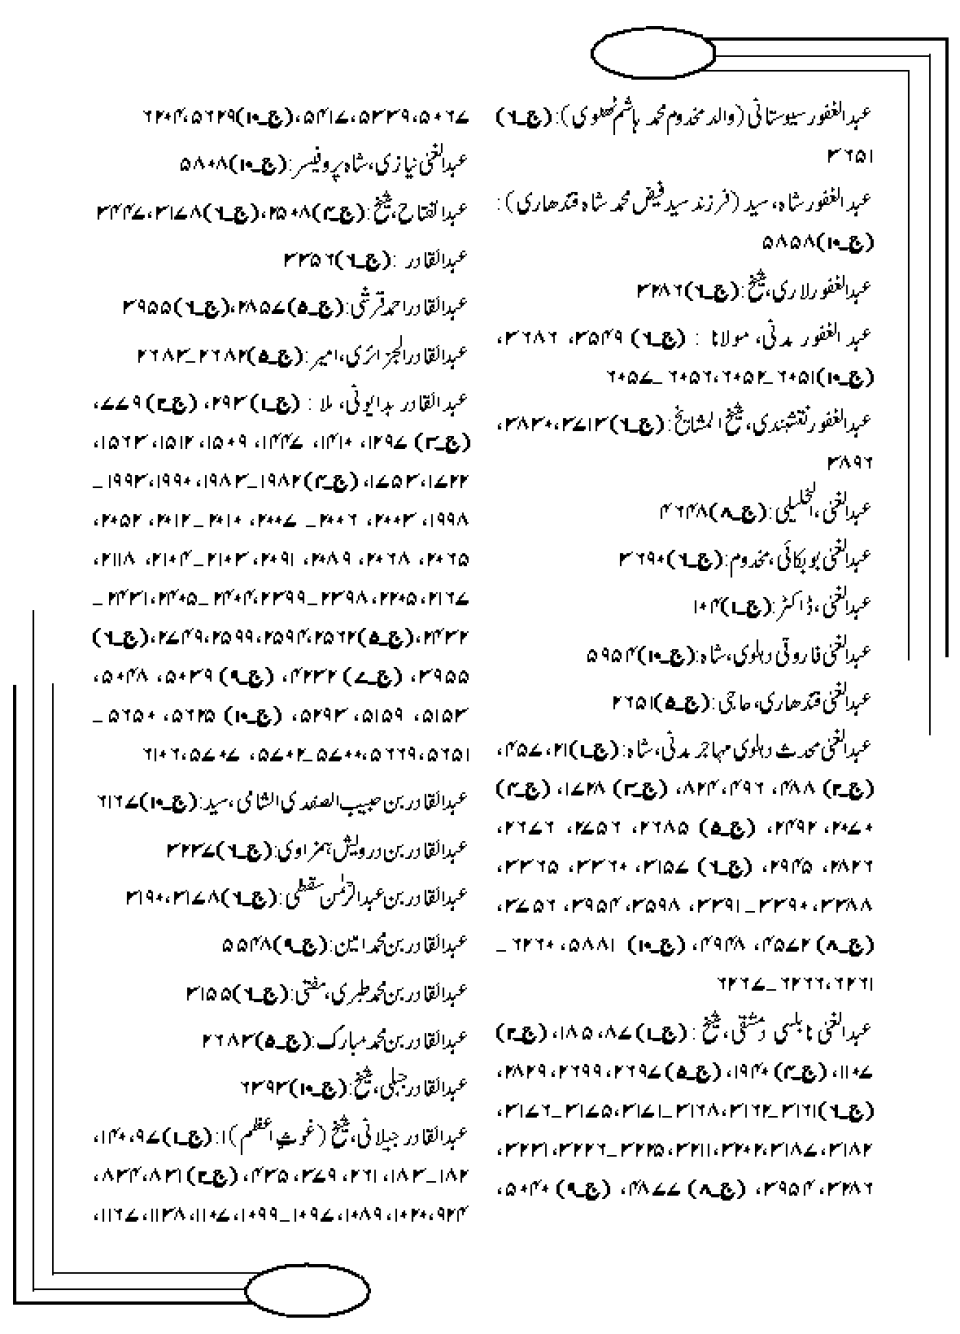 عبدالغفور سیوستانی (والد مخدوم محمد ہاشم ٹھٹھوی): (ج۔۶)
۳۶۵۱
عبد الغفور شاہ، سید (فرزند سید فیض محمد شاہ قندھاری):
(ج۔۱۰)۵۸۵۸
عبدالغفور لاری، شیخ: (ج۔۶)۳۲۸۶
عبد الغفور مدنی، مولانا : (ج۔۶) ۳۵۴۹، ۳۶۸۶،
(ج۔۱۰)۶۰۵۱۔۶۰۵۲، ۶۰۵۶۔۶۰۵۷
عبدالغفور نقشبندی، شیخ المشایخ: (ج۔۶)۳۷۱۳، ۳۸۳۰،
۳۸۹۶
عبدالغنی، الخلیلی: (ج۔۸)۴۶۴۸
عبدالغنی بوبکائی، مخدوم: (ج۔۶)۳۶۹۰
عبدالغنی، ڈاکٹر: (ج۔۱)۱۰۴
عبدالغنی فاروقی دہلوی، شاہ: (ج۔۱۰)۵۹۵۴
عبدالغنی قندھاری، حاجی: (ج۔۵)۲۶۵۱
عبدالغنی محدث دہلوی مہاجر مدنی، شاہ: (ج۔۱)۲۱، ۴۵۷،
(ج۔۲) ۴۸۸، ۴۹۶، ۸۲۴، (ج۔۳) ۱۷۲۸، (ج۔۴)
۲۰۷۰، ۲۴۹۲، (ج۔۵) ۲۶۸۵، ۲۷۵۶، ۲۷۶۶،
۲۸۲۶، ۲۹۴۵، (ج۔۶) ۳۱۵۷، ۳۳۶۰، ۳۳۶۵،
۳۳۸۸، ۳۳۹۰۔۳۳۹۱، ۳۵۹۸، ۳۹۵۴، ۳۷۵۶،
(ج۔۸) ۴۵۷۲، ۴۹۴۸، (ج۔۱۰) ۵۸۸۱، ۶۲۶۰۔
۶۲۶۱، ۶۲۶۶۔۶۲۶۷
عبدالغنی نابلسی دمشقی، شیخ : (ج۔۱)۸۷، ۱۸۵، (ج۔۲)
۱۱۰۷، (ج۔۴) ۱۹۴۰، (ج۔۵)۲۶۹۷، ۲۶۹۹، ۲۸۲۹،
(ج۔۶)۳۱۶۱۔۳۱۶۲، ۳۱۶۸۔۳۱۷۱، ۳۱۷۵۔۳۱۷۶،
۳۱۸۲، ۳۱۸۷، ۳۲۰۲، ۳۲۱۱، ۳۲۲۵۔۳۲۲۶، ۳۲۳۱،
۳۲۸۶، ۳۹۵۴، (ج۔۸) ۴۸۷۷، (ج۔۹) ۵۰۴۰،
۵۰۶۷، ۵۳۳۹، ۵۴۱۷، (ج۔۱۰)۵۶۲۹، ۶۲۰۴
عبدالغنی نیازی، شاہ پروفیسر: (ج۔۱۰)۵۸۰۸
عبدالفتاح، شیخ: (ج۔۴)۲۵۰۸، (ج۔۶)۳۱۷۸، ۳۴۴۷
عبدالقادر : (ج۔۶)۳۳۵۶
عبدالقادر احمد قرشی: (ج۔۵)۲۸۵۷، (ج۔۶)۳۹۵۵
عبدالقادر الجزائری، امیر: (ج۔۵)۲۶۸۲۔۲۶۸۳
عبدالقادر بدایونی، ملا : (ج۔۱) ۲۹۳، (ج۔۲) ۷۷۹،
(ج۔۳) ۱۲۹۷، ۱۴۱۰، ۱۴۴۷، ۱۵۰۹، ۱۵۱۲، ۱۵۶۳،
۱۷۲۲، ۱۷۵۳، (ج۔۴)۱۹۸۲۔۱۹۸۳، ۱۹۹۰، ۱۹۹۳۔
۱۹۹۸، ۲۰۰۳، ۲۰۰۶۔ ۲۰۰۷، ۲۰۱۰۔۲۰۱۲، ۲۰۵۲،
۲۰۶۵، ۲۰۶۸، ۲۰۸۹، ۲۰۹۱، ۲۱۰۳۔۲۱۰۴، ۲۱۱۸،
۲۱۶۷، ۲۲۰۵، ۲۳۹۸۔۲۳۹۹، ۲۴۰۴۔۲۴۰۵، ۲۴۳۱۔
۲۴۳۲، (ج۔۵)۲۵۶۲، ۲۵۹۴، ۲۵۹۹، ۲۷۴۹، (ج۔۶)
۳۹۵۵، (ج۔۷) ۴۲۳۲، (ج۔۹) ۵۰۳۹، ۵۰۴۸،
۵۱۵۳، ۵۱۵۹، ۵۲۹۳، (ج۔۱۰) ۵۶۲۵، ۵۶۵۰۔
۵۶۵۱، ۵۶۶۹، ۵۷۰۰۔۵۷۰۲، ۵۷۰۷، ۶۱۰۶
عبدالقادر بن حبیب الصفدی الشامی، سید: (ج۔۱۰)۶۱۶۷
عبدالقادر بن درویش ہمزاوی: (ج۔۶)۳۲۳۷
عبدالقادر بن عبدالرحمٰن سقطی: (ج۔۶)۳۱۷۸، ۳۱۹۰
عبدالقادر بن محمد امین: (ج۔۹)۵۵۴۸
عبدالقادر بن محمد طبری، مفتی: (ج۔۶)۳۱۵۵
عبدالقادر بن محمد مبارک: (ج۔۵)۲۶۸۳
عبدالقادر جبلی، شیخ: (ج۔۱۰)۶۳۹۳
عبدالقادر جیلانی، شیخ (غوثِ اعظم)ا: (ج۔۱)۹۷، ۱۴۰،
۱۸۲۔۱۸۳، ۲۶۱، ۳۷۹، ۴۳۵، (ج۔۲)۸۳۱، ۸۳۴،
۹۲۴، ۱۰۲۰، ۱۰۸۹، ۱۰۹۷۔۱۰۹۹، ۱۱۰۷، ۱۱۳۸، ۱۱۶۷،